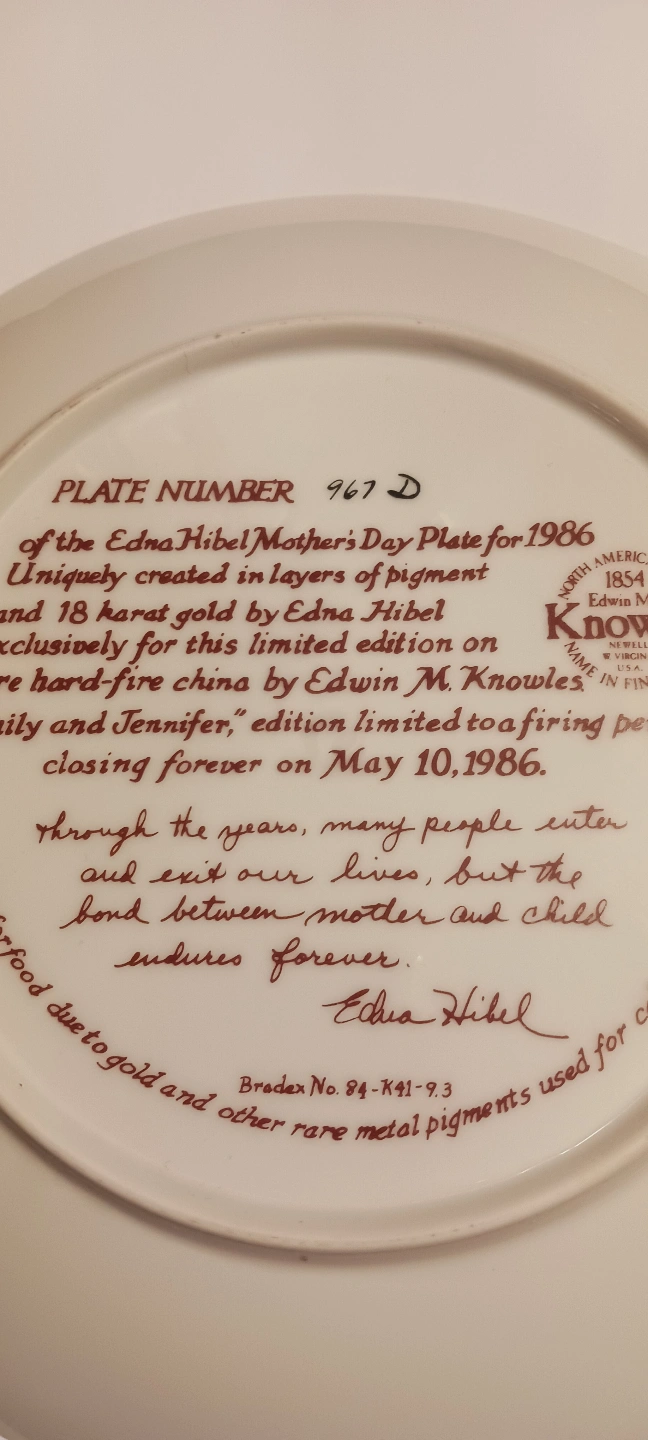 PLATE NUMBER 967 D
of the Edna Hibel Mother's Day Plate for 1986
Uniquely created in layers of pigment
and 18 karat gold by Edna Hibel
xclusively for this limited edition on
re hard-fire china by Edwin M. Knowles.
ily and Jennifer," edition limited to a firing pe
closing forever on May 10, 1986.
NORTH AMERIC
1854
Edwin M
Know
NEWELL
W VIRGIN
U.S.A.
NAME IN FIN
Through the years, many people enter
and exit our lives, but the
bond between mother and child
endures forever.
Edna Hibel
Bradex No. 84-K41-9.3
for food due to gold and other rare metal pigments used for c